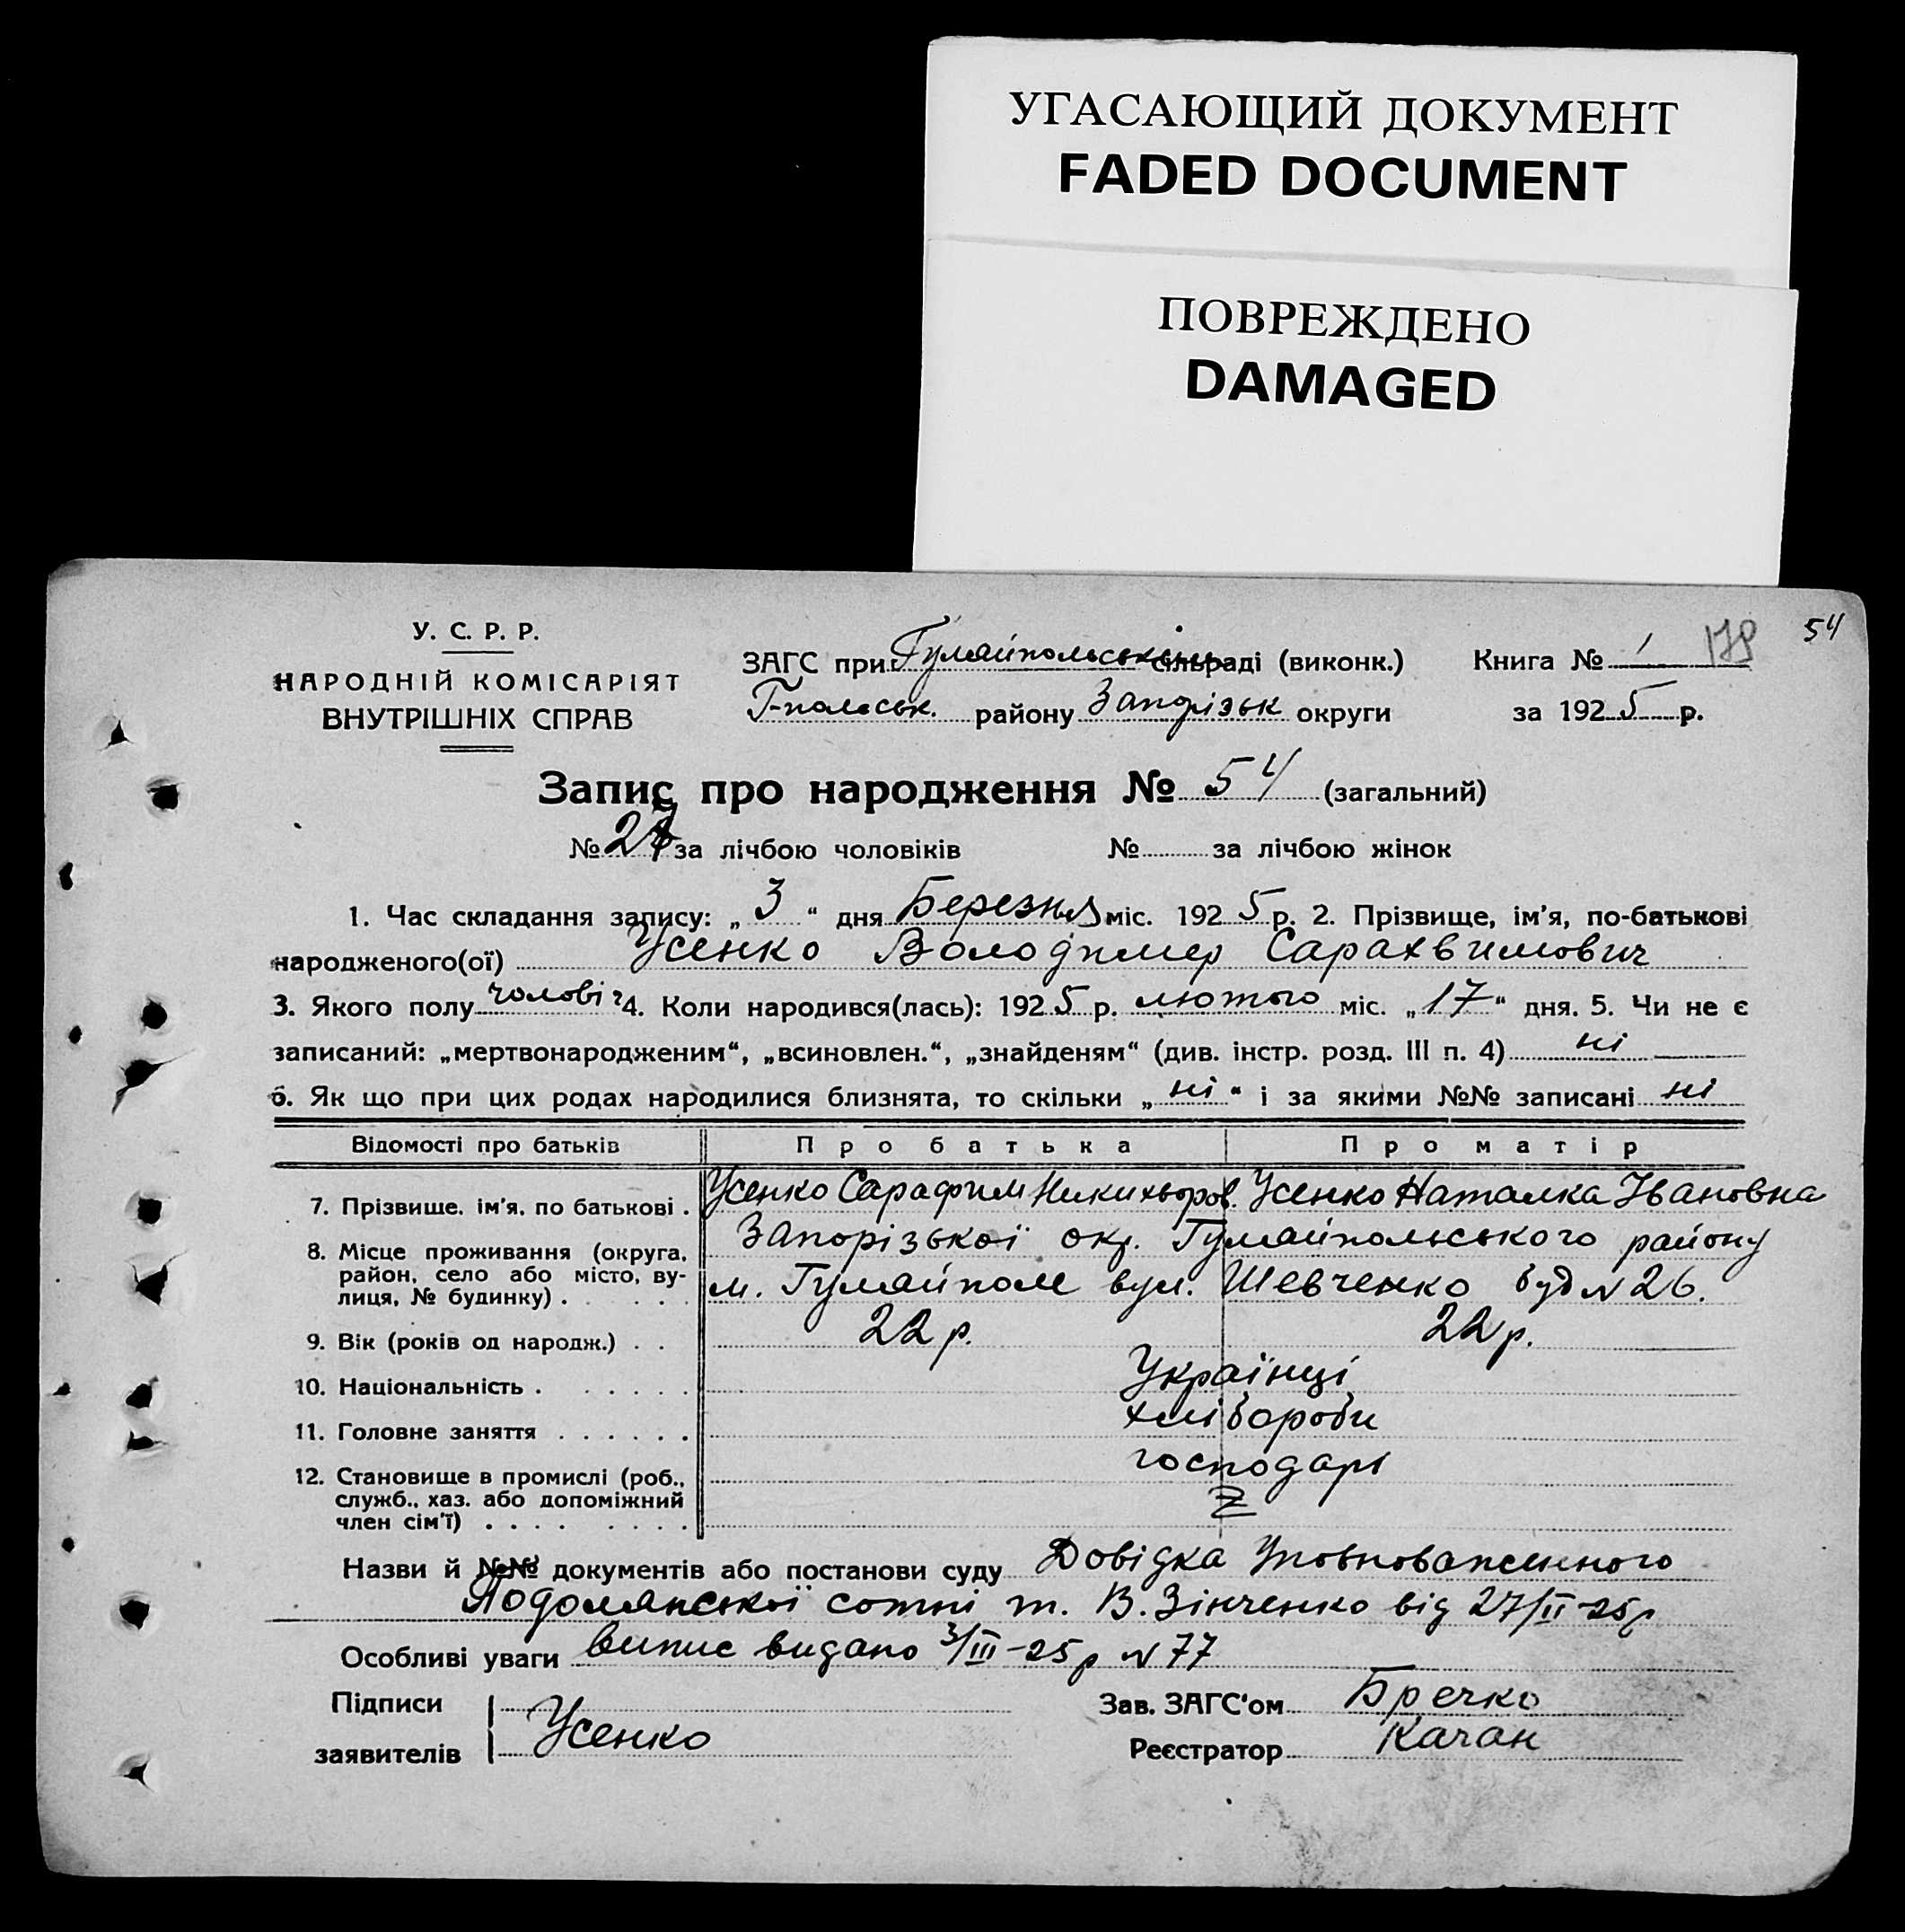 УГАСАЮЩИЙ ДОКУМЕНТ
FADED DOCUMENT
ПОВРЕЖДЕНО
DAMAGED
54
У. С. Р. Р.
НАРОДНІЙ КОМІСАРІЯТ
ВНУТРІШНІХ СПРАВ
ЗАГС при Гуляйпольськім сільраді (виконк.)
Г-польськ. району Запорізьк округи
Книга № 1 178
за 1925 р.
Запис про народження № 54 (загальний)
№ 27 за лічбою чоловіків № за лічбою жінок
1. Час складання запису: „3“ дня Березня міс. 1925 р. 2. Прізвище, ім'я, по-батькові
народженого(ої) Усенко Володимер Сарахвимович
3. Якого полу чоловіч 4. Коли народився(лась): 1925 р. лютого міс. „17“ дня. 5. Чи не є
записаний: „мертвонародженим“, „всиновлен.“, „знайденям“ (див. інстр. розд. III п. 4) ні
6. Як що при цих родах народилися близнята, то скільки „ні“ і за якими №№ записані ні
Відомості про батьків Про батька Про матір
7. Прізвище. ім'я. по батькові . Усенко Сарафим Никихворов. Усенко Наталка Івановна
8. Місце проживання (округа, район, село або місто, вулиця, № будинку) . Запорізької окр. Гуляйпольського району
м. Гуляйполе вул. Шевченко буд N 26.
9. Вік (років од народж.) . . 22 р. 22 р.
10. Національність . Українці
11. Головне заняття . хлібороби
12. Становище в промислі (роб., служб., хаз. або допоміжний член сім'ї) . господарі
Назви й №№ документів або постанови суду Довідка Уповноваженного
Подолянської сотні т. В. Зінченко від 27/II-25р
Особливі уваги випис видано 3/III-25р N 77
Підписи
заявителів Усенко
Зав. ЗАГС'ом Бречко
Реєстратор Качан